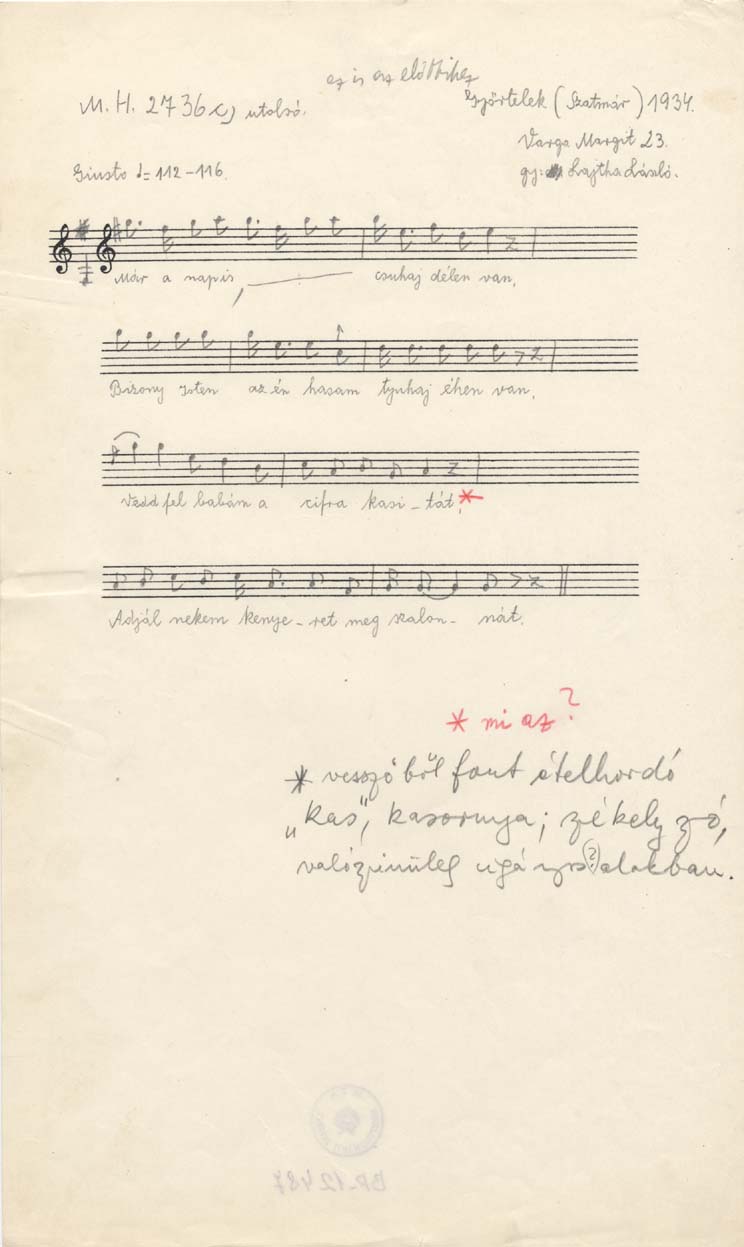 ez is az előbbihez
M. H. 2736 c) utolsó.
Győrtelek (Szatmár) 1934.
Varga Margit 23.
Giusto ♩= 112-116.
gy: Lajtha László.
Már a nap is, csuhaj délen van,
Bizony Isten az én hasam tyuhaj éhen van.
Vedd fel babám a cifra kasi-tát,*
Adjál nekem kenye-ret meg szalon-nát.
* mi az?
* vesszőből font ételhordó
„kas", kasornya; székely szó,
valószinüleg (?) alakban.
BR-12487